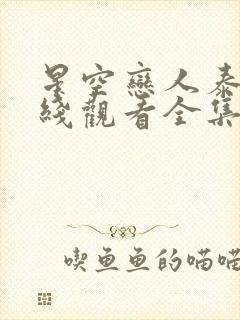 星空戀人泰
綫觀看全集
喫魚魚的喵喵